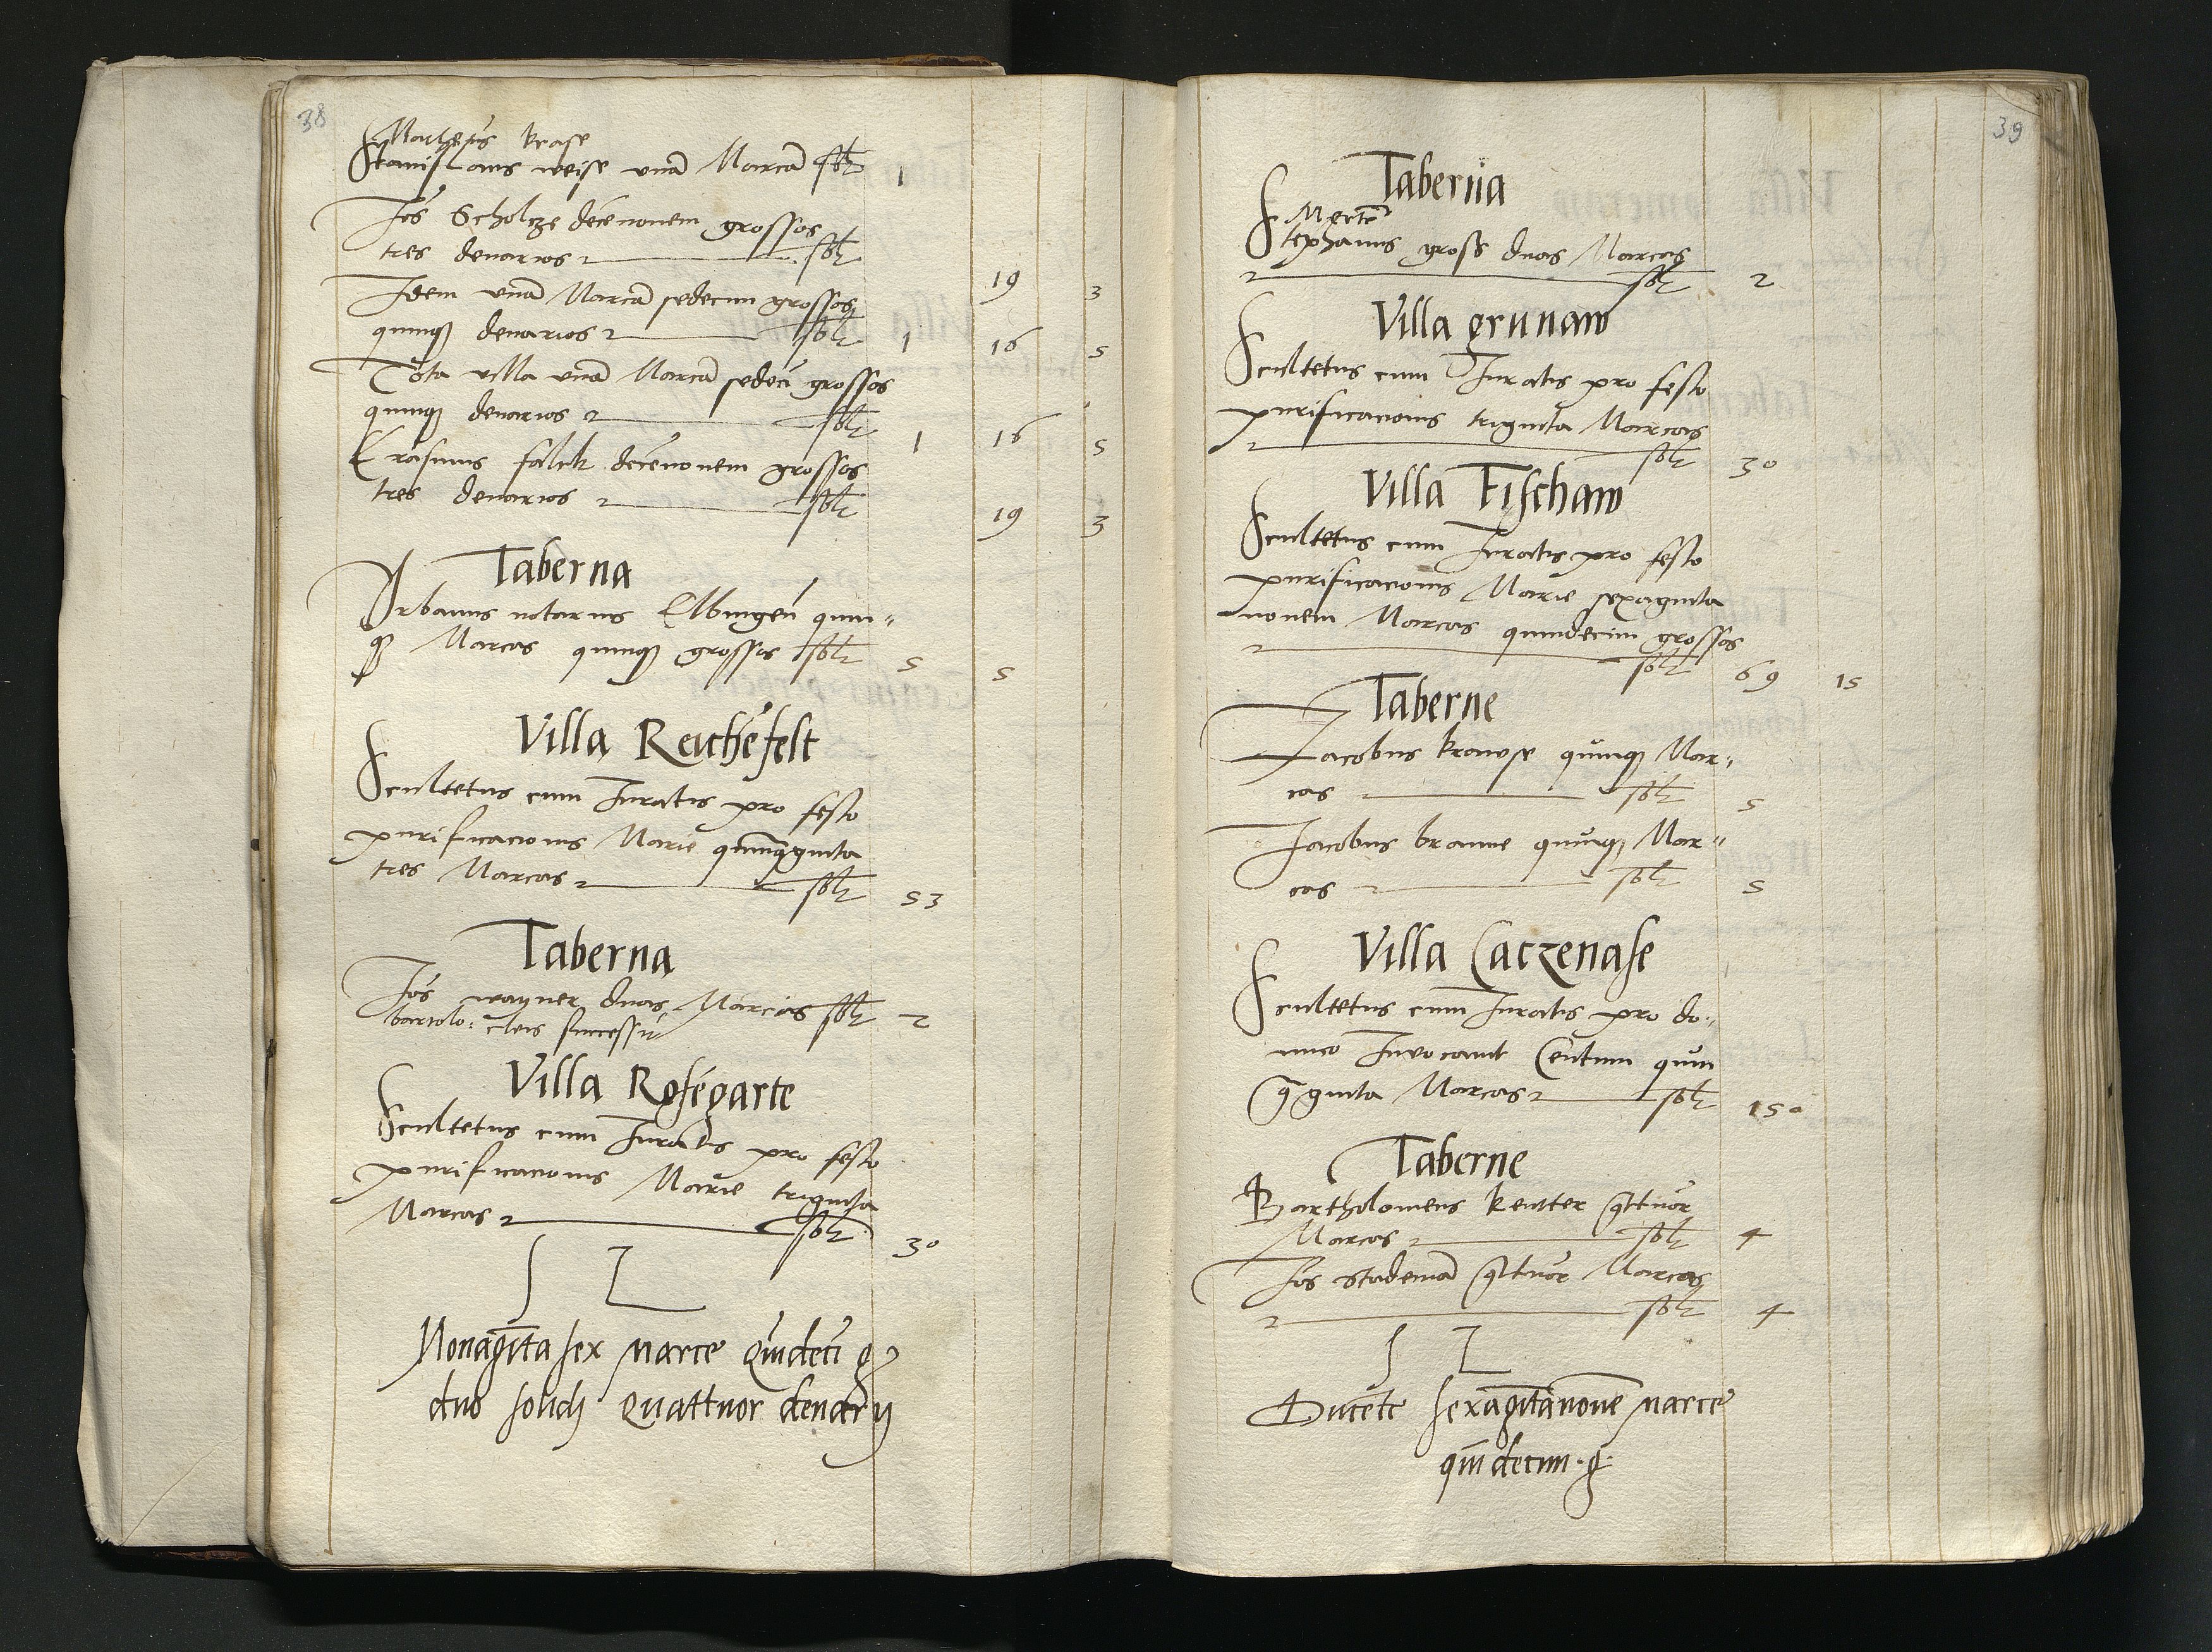 38
Matheus krase
Stanislaus weise unā Marcā sōlt 1
Jōs Scholcze decēnovem grossos
tres denarios sōlt 19 3
Idem unā Marcā sedecim grossos
quinqꝫ denarios sōlt 1 16 5
Tota villa unā Marcā sedeci grossos
quinqꝫ denarios sōlt 1 16 5
Erasmus falck decēnovem grossos
tres denarios sōlt 19 3
Taberna
Urbanus notarius Elbingeñ quin„
qꝫ Marcas quinqꝫ grossos sōlt 5 5
Villa Reichēfelt
Scultetus cum Juratis pro festo
purificacionis Marie quinquāginta
tres Marcas sōlt 53
Taberna
Jōs wayner duas Marcas sōlt 2
bartolo: cleis successit
Villa Rosēgarte
Scultetus cum Juratis pro festo
purificacionis Marie triginta
Marcas sōlt 30
S L
Nonagīta sex marce quīdeci g
duo solidi quattuor denarij
39
Taberna
Mertē
Stephanus gross duas Marcas
sōlt 2
Villa grunaw
Scultetus cum Juratis pro festo
purificacionis triginta Marcas
sōlt 30
Villa Fischaw
Scultetus cum Juratis pro festo
purificacionis Marie sexaginta
novem Marcas quindecim grossos
sōlt 69 15
Taberne
Jacobus krawse quinqꝫ Mar„
cas sōlt 5
Jacobus braune quinqꝫ Mar„
cas sōlt 5
Villa Caczenase
Scultetus cum Juratis pro do„
nico Invocavit Centum quin
quāginta Marcas sōlt 150
Taberne
Bartholomeus keutter qāttuor
Marcas sōlt 4
Jōs stademā qāttuor Marcas
sōlt 4
S L
Ducēte sexagītanove marce
quīdecim g